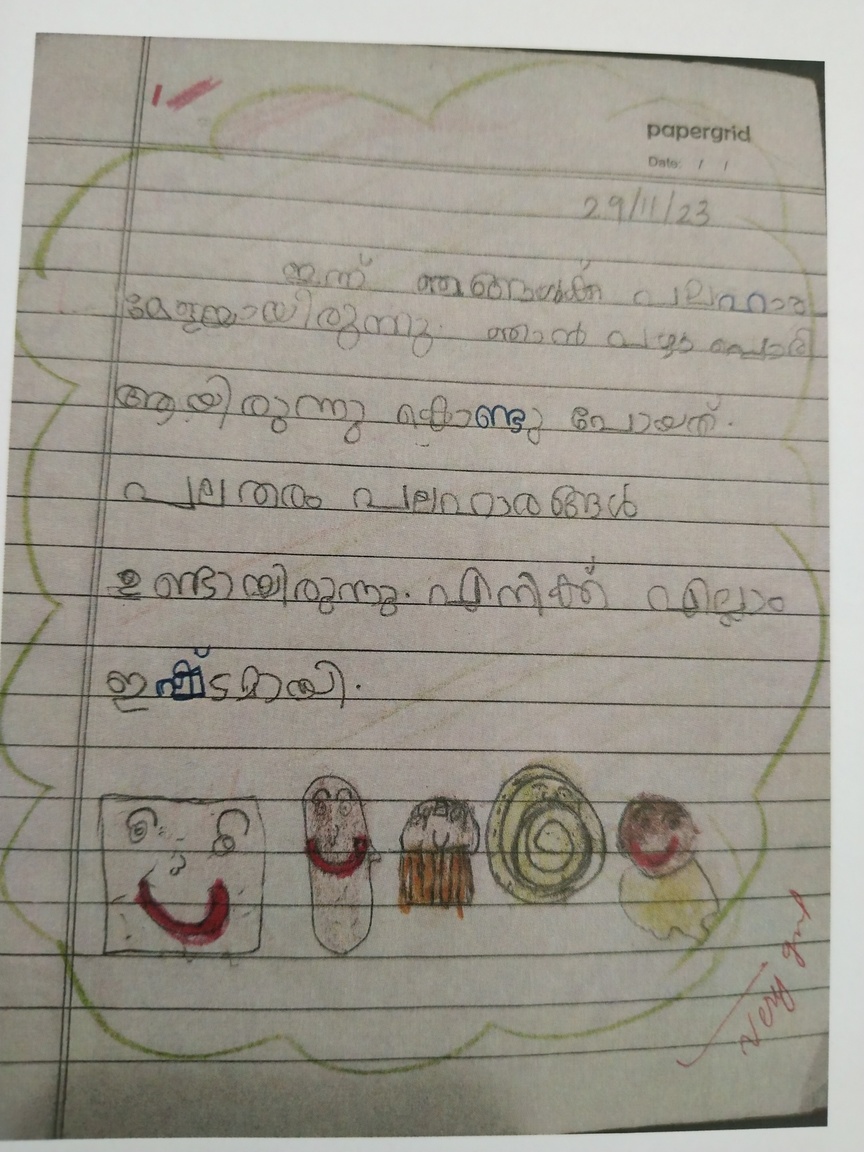 papergrid
Date: / /
29/11/23
ഇന്ന് ഞങ്ങൾക്ക് പലഹാര
മേളയായിരുന്നു. ഞാൻ പഴം പൊരി
ആയിരുന്നു കൊണ്ടു പോയത്.
പല തരം പലഹാരങ്ങൾ
ഉണ്ടായിരുന്നു. എനിക്ക് എല്ലാം
ഇഷ്ടമായി.
very good